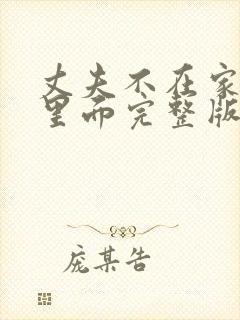 丈夫不在家
里面完整版
庞某告